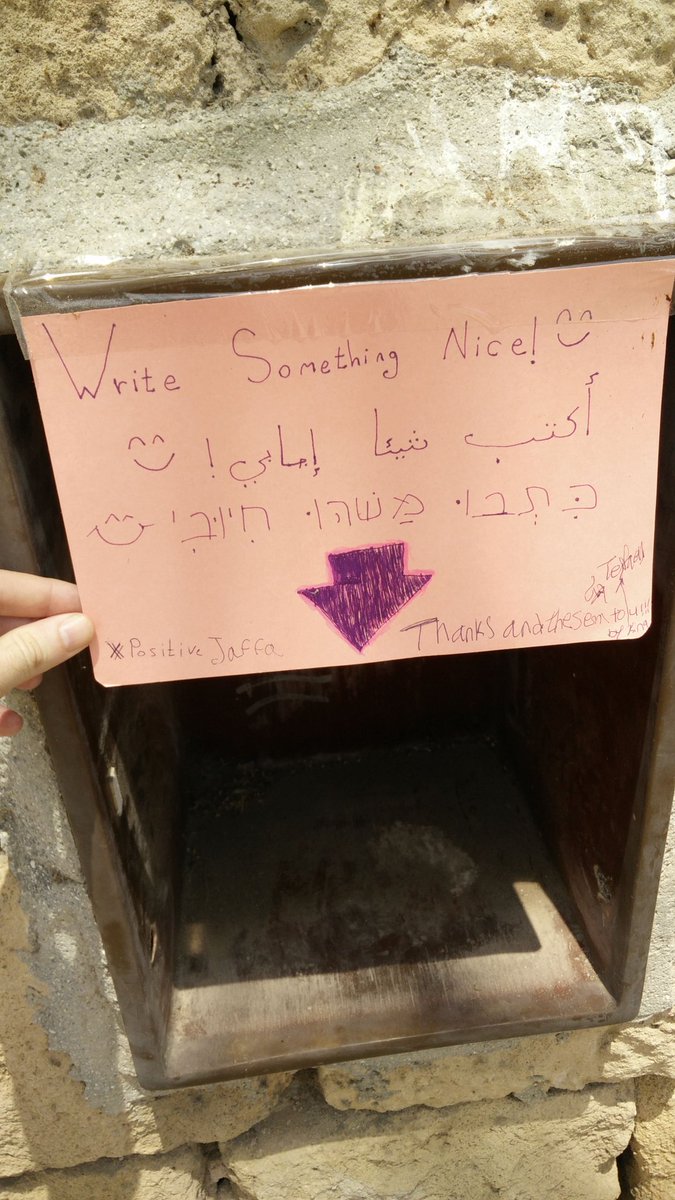 Write Something Nice!
أكتب شيئا إيجابي!
כִּתְבוּ מַשֶׁהוּ חִיוּבִי
Positive Jaffa
Thanks and the same to u